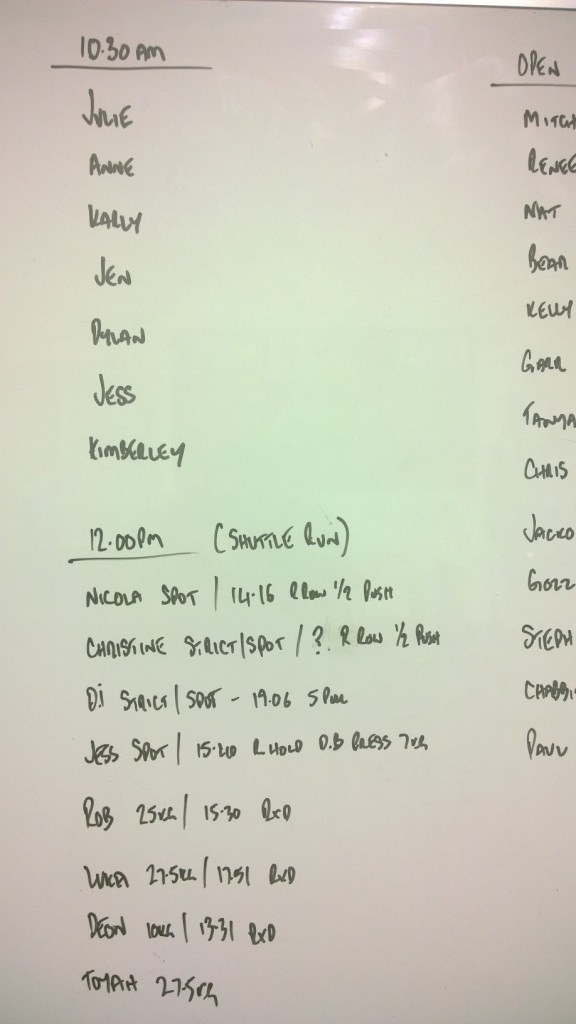 10.30 AM
JULIE
ANNE
KARLY
JEN
DYLAN
JESS
KIMBERLEY
12.00PM (SHUTTLE RUN)
NICOLA SPOT / 14.16 R ROW 1/2 PUSH
CHRISTINE STRICT/SPOT / ? R ROW 1/2 PUSH
DI STRICT/SPOT - 19.06 5
JESS SPOT / 15.40 R HOLD D.B PRESS 7KG
ROB 25KG / 15.30 RXD
LUKA 27.5KG / 17.51 RXD
DEON 10KG / 13.31 RXD
27.5KG
OPEN
MITCH
RENEE
NAT
BEAR
KELLY
GARR
TANYA
CHRIS
JACKO
GOZZ
STEPH
PAUL